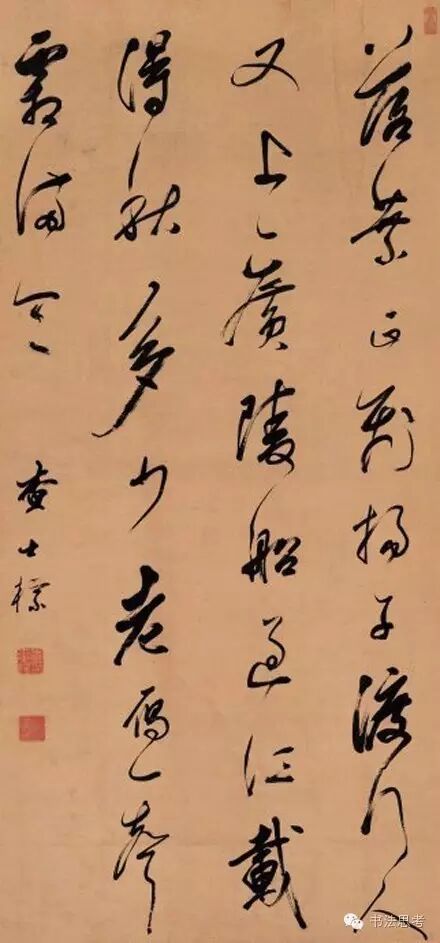 落葉正飛揚子渡行人
又上廣陵船過江載
得秋多少老雁一聲
霜滿天
查士標
书法思考